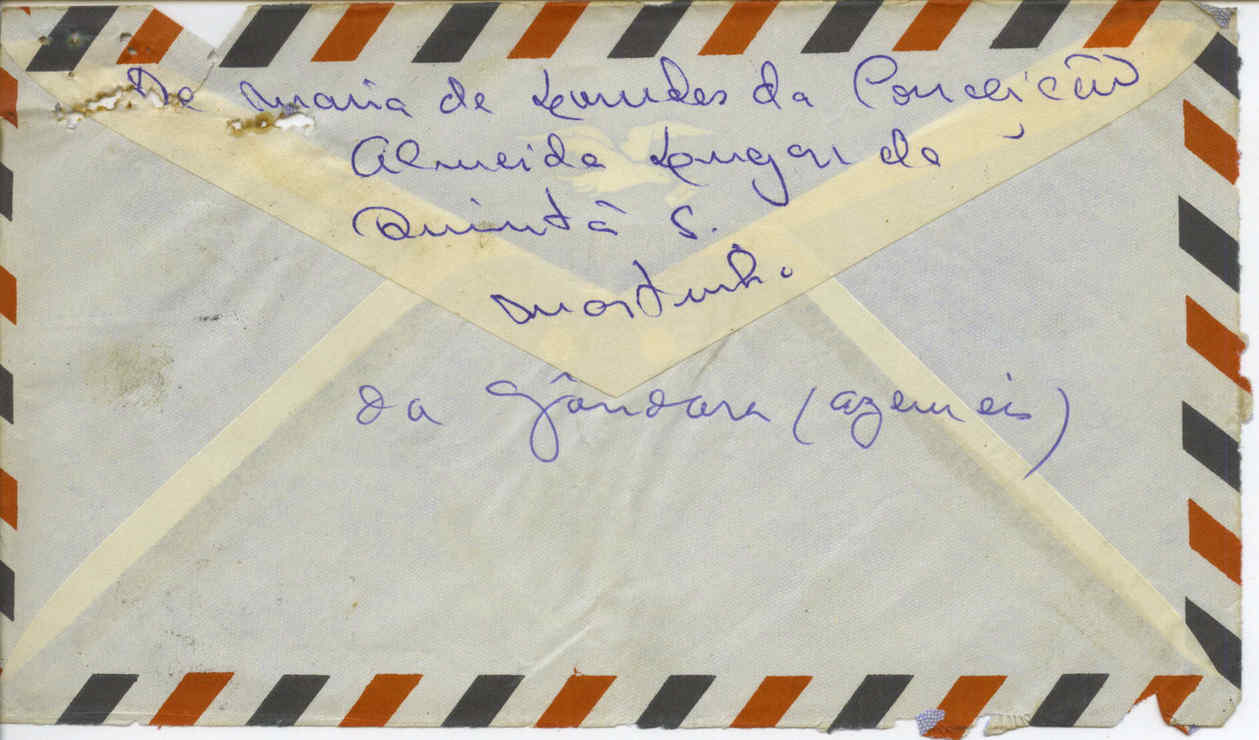 De Maria de Lourdes da Conceição
Almeida Lugar da
Quintã S.
Martinho
da Gândara (azemeis)